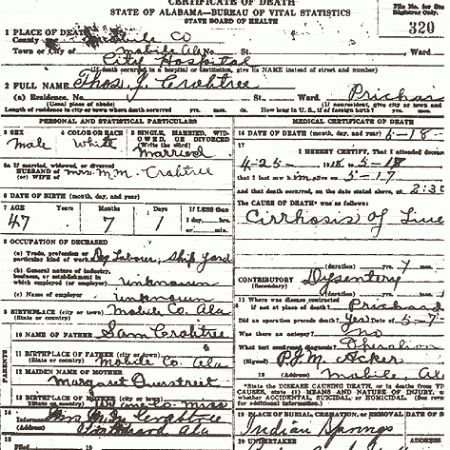 CERTIFICATE OF DEATH
STATE OF ALABAMA—BUREAU OF VITAL STATISTICS
STATE BOARD OF HEALTH
File No. for Sta
Registrar Only.
320
1 PLACE OF DEATH
County Mobile Co
Town or City of Mobile Ala No. St. Ward
City Hospital
(If death occurred in a hospital or institution, give its NAME instead of street and number)
2 FULL NAME Thos. J. Crabtree
(a) Residence. No. St. Prichar
(Usual place of abode) (If nonresident, give city or town and
Length of residence in city or town where death occurred yrs. mos. ds. How long in U. S., if of foreign birth? yrs. mo
PERSONAL AND STATISTICAL PARTICULARS
3 SEX 4 COLOR OR RACE 5 SINGLE, MARRIED, WIDOWED OR DIVORCED
(Write the word)
Male White Married
5a If married, widowed, or divorced
HUSBAND of
(or) WIFE of Mrs. M.M. Crabtree
6 DATE OF BIRTH (month, day, and year)
7 AGE Years Months Days If LESS than
1 day, hrs.
or min.
47 7 1
8 OCCUPATION OF DECEASED
(a) Trade, profession, or
particular kind of work Day Labour, Ship Yard
(b) General nature of industry,
business, or establishment in
which employed (or employer) unknown
(c) Name of employer unknown
9 BIRTHPLACE (city or town) Mobile Co. Ala
(State or country)
PARENTS
10 NAME OF FATHER Sam Crabtree
11 BIRTHPLACE OF FATHER (city or town)
(State or country) Mobile Co. Ala
12 MAIDEN NAME OF MOTHER
Margaret Overstreet
13 BIRTHPLACE OF MOTHER (city or town)
(State or country) Co. Miss
14
Informant Crabtree
(Address) Prichard Ala
15
Filed
MEDICAL CERTIFICATE OF DEATH
16 DATE OF DEATH (month, day, and year) 5-18-
17
I HEREBY CERTIFY, That I attended decea
4-25 5-18
that I last saw him alive on 5-17
and that death occurred, on the date stated above, at 2:30
The CAUSE OF DEATH was as follows:
Cirrhosis of Live
(duration) yrs. mos.
CONTRIBUTORY Dysentery
(Secondary)
(duration) yrs. mos.
18 Where was disease contracted
if not at place of death? Prichard
Did an operation precede death? Yes Date of 5-7
Was there an autopsy? No
What test confirmed diagnosis? Operation
(Signed) P.J.M. Acker
19 (Address) Mobile Ala
*State the DISEASE CAUSING DEATH, or in deaths from VI
CAUSES, state (1) MEANS AND NATURE OF INJURY,
whether ACCIDENTAL, SUICIDAL, or HOMICIDAL. (See
19 PLACE OF BURIAL, CREMATION, OR REMOVAL DATE OF B
Indian Springs
20 UNDERTAKER